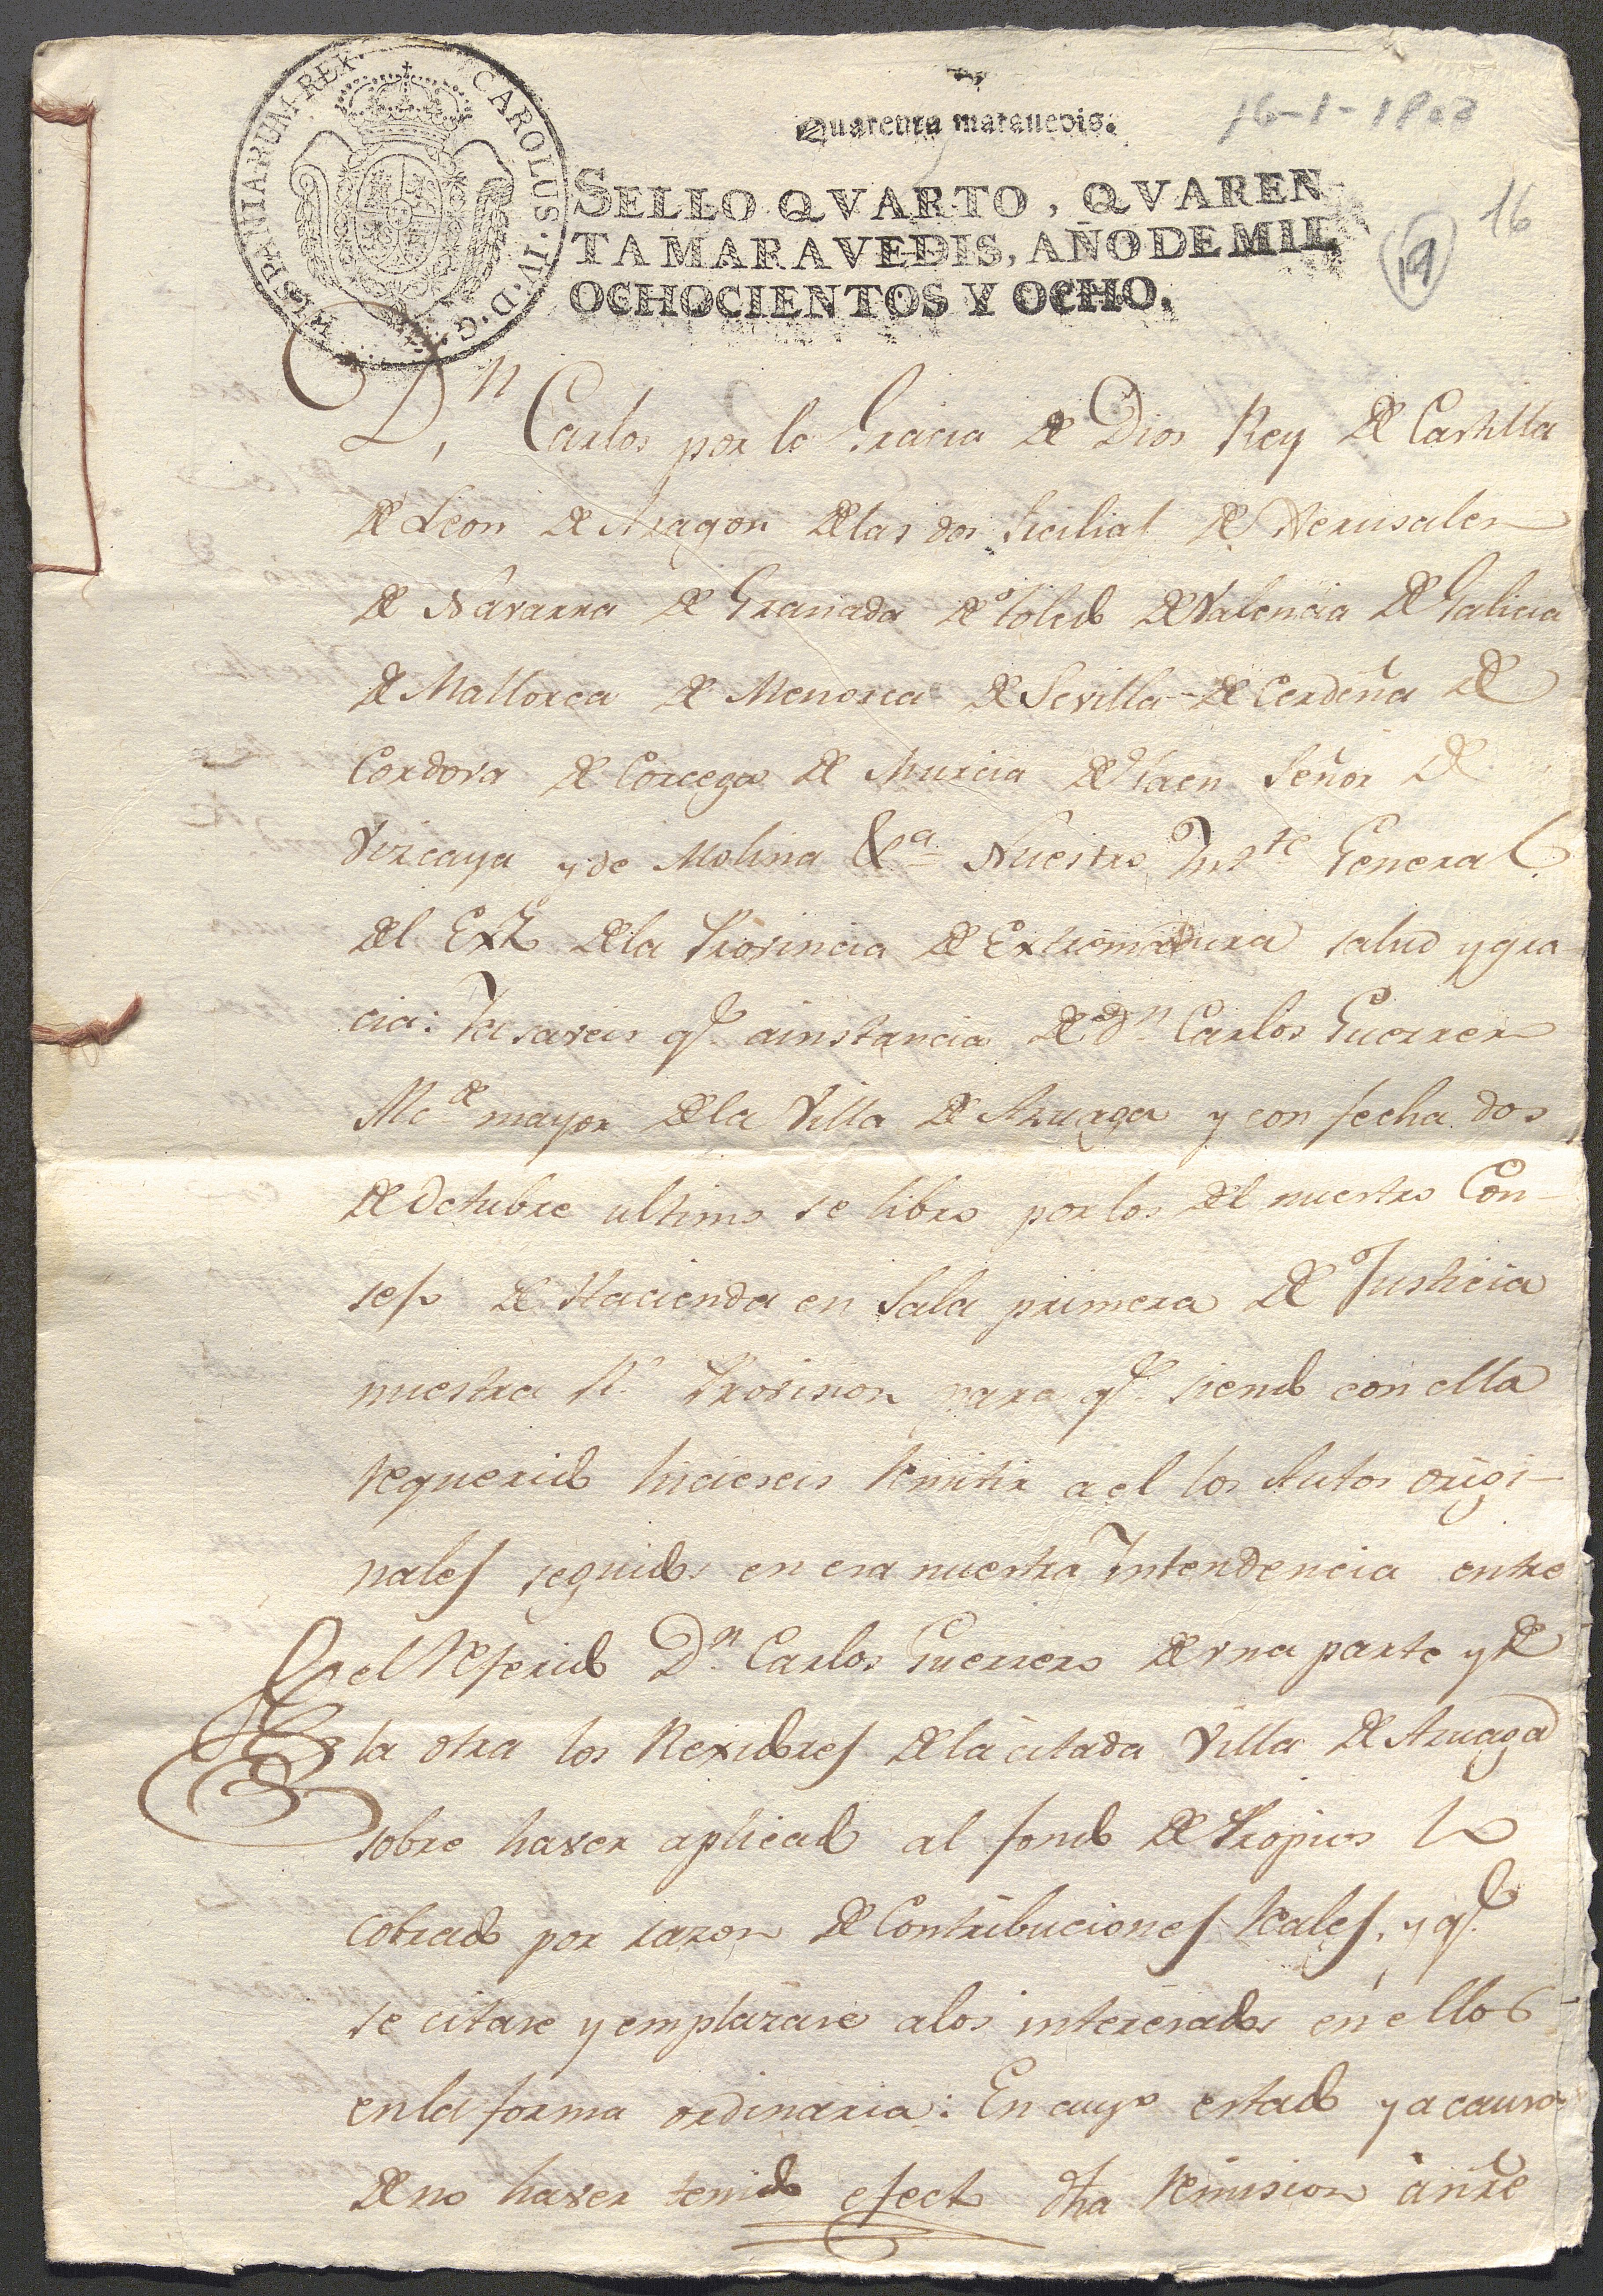 HISPANIARUM REX CAROLUS IV D G
Quarenta maravedis.
16-1-1808
SELLO QVARTO, QVAREN
TA MARAVEDIS, AÑO DE MIL
OCHOCIENTOS Y OCHO.
16
19
Dn Carlos por la Gracia de Dios Rey de Castilla
de Leon de Aragon de las dos Sicilias de Jerusalen
de Navarra de Granada de Toledo de Valencia de Galicia
de Mallorca de Menorca de Sevilla de Cerdeña de
Cordova de Corcega de Murcia de Jaen Señor de
Vizcaya y de Molina &a Nuestro Intte General
del Exto de la Provincia de Extremadura salud y gra
cia: Ya saveis qe a instancia de dn Carlos Guerrero
Alcde mayor de la Villa de Azuaga y con fecha dos
de Octubre ultimo se libro por los del nuestro Con-
sejo de Hacienda en Sala primera de Justicia
nuestra Rl Provision para qe siendo con ella
requerido hicieseis remitir a el los Autos origi-
nales seguidos en esa nuestra Intendencia entre
el referido Dn Carlos Guerrero de una parte y de
la otra los Rexidores de la citada Villa de Azuaga
sobre haver aplicado al fondo de Propios lo
cobrado por razon de Contribuciones reales, y qe
se citase y emplazase a los interesados en ellos
en la forma ordinaria: En cuyo estado y a causa
de no haver tenido efecto dha remision ante